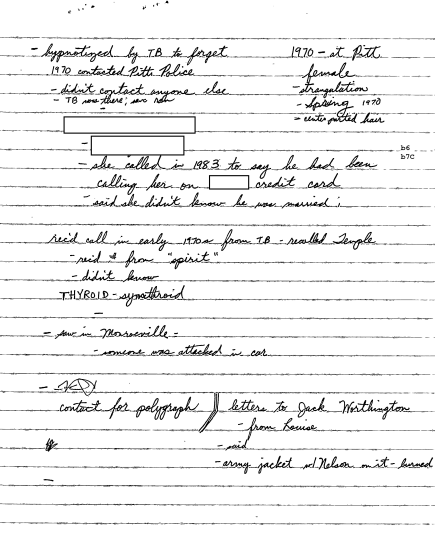 - hypnotized by TB to forget
1970 contacted Pitt Police
- didn't contact anyone else
- TB was there; saw
1970 - at Pitt
female
- strangulation
- Spring 1970
- center parted hair
-
b6
b7C
- she called in 1983 to say he had been
calling her on credit card
- said she didn't know he was married;
rec'd call in early 1970s from TB - recalled Temple
- from "spirit"
- didn't know
THYROID - synthroid
-
- saw in Monroeville -
- someone was attacked in car
-
contact for polygraph
letters to Jack Worthington
- from Louise
- said
- army jacket w/ Nelson on it - burned
-